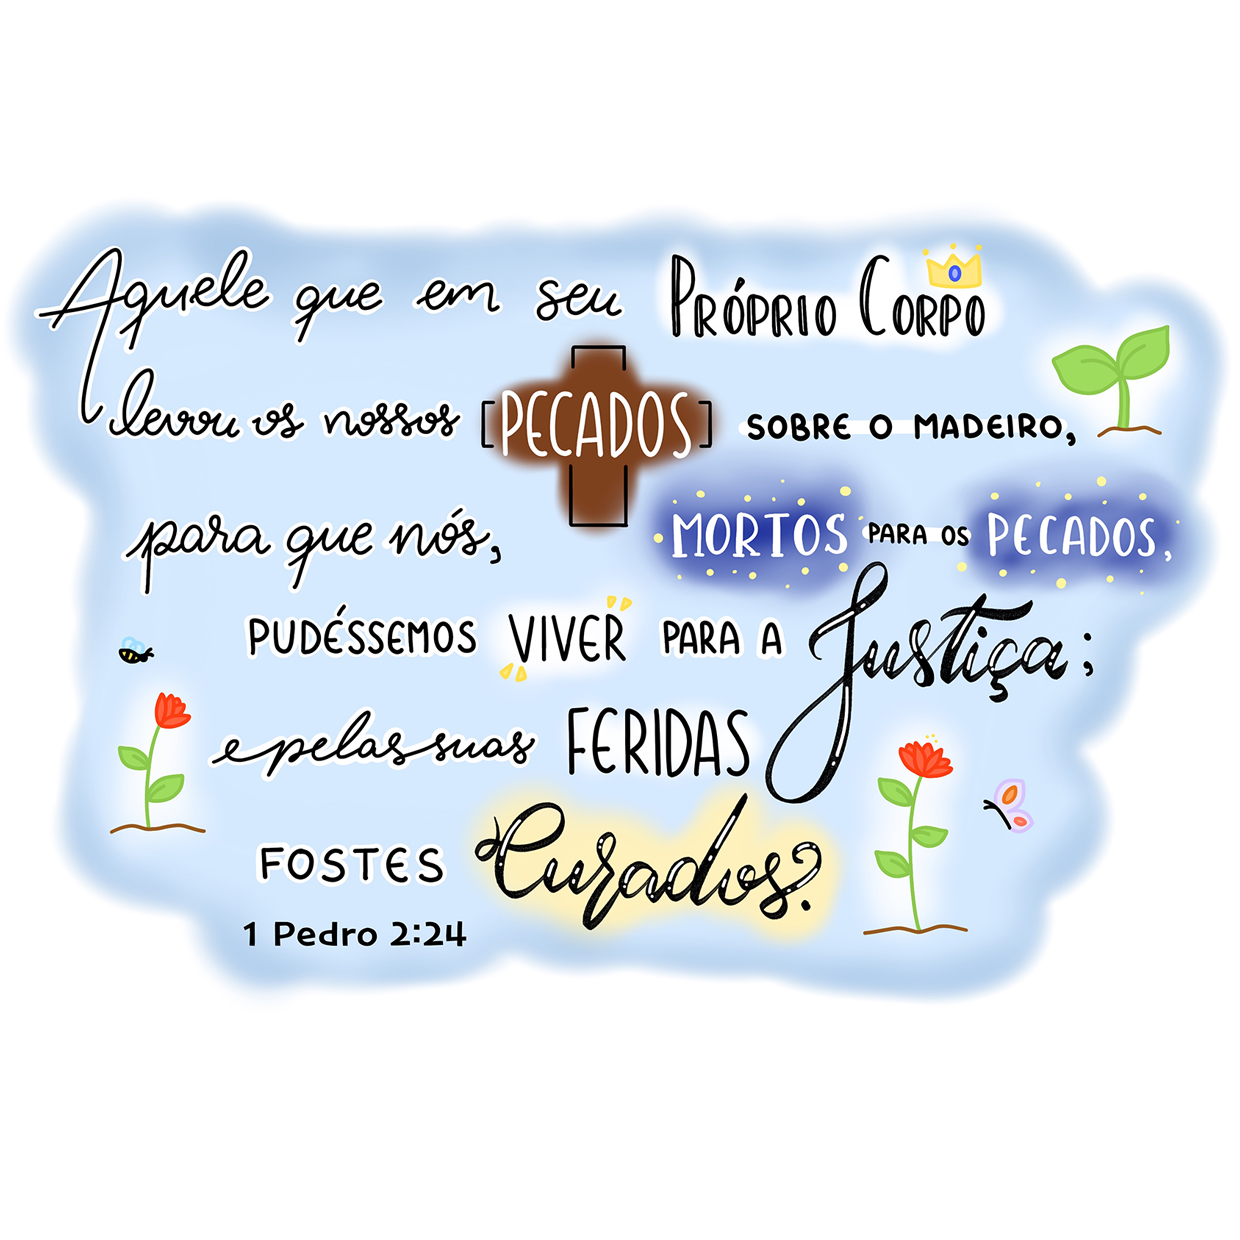 Aquele que em seu PRÓPRIO CORPO
levou os nossos [PECADOS] SOBRE O MADEIRO,
para que nós, MORTOS PARA OS PECADOS,
PUDÉSSEMOS VIVER PARA A Justiça;
e pelas suas FERIDAS
FOSTES Curados.
1 Pedro 2:24